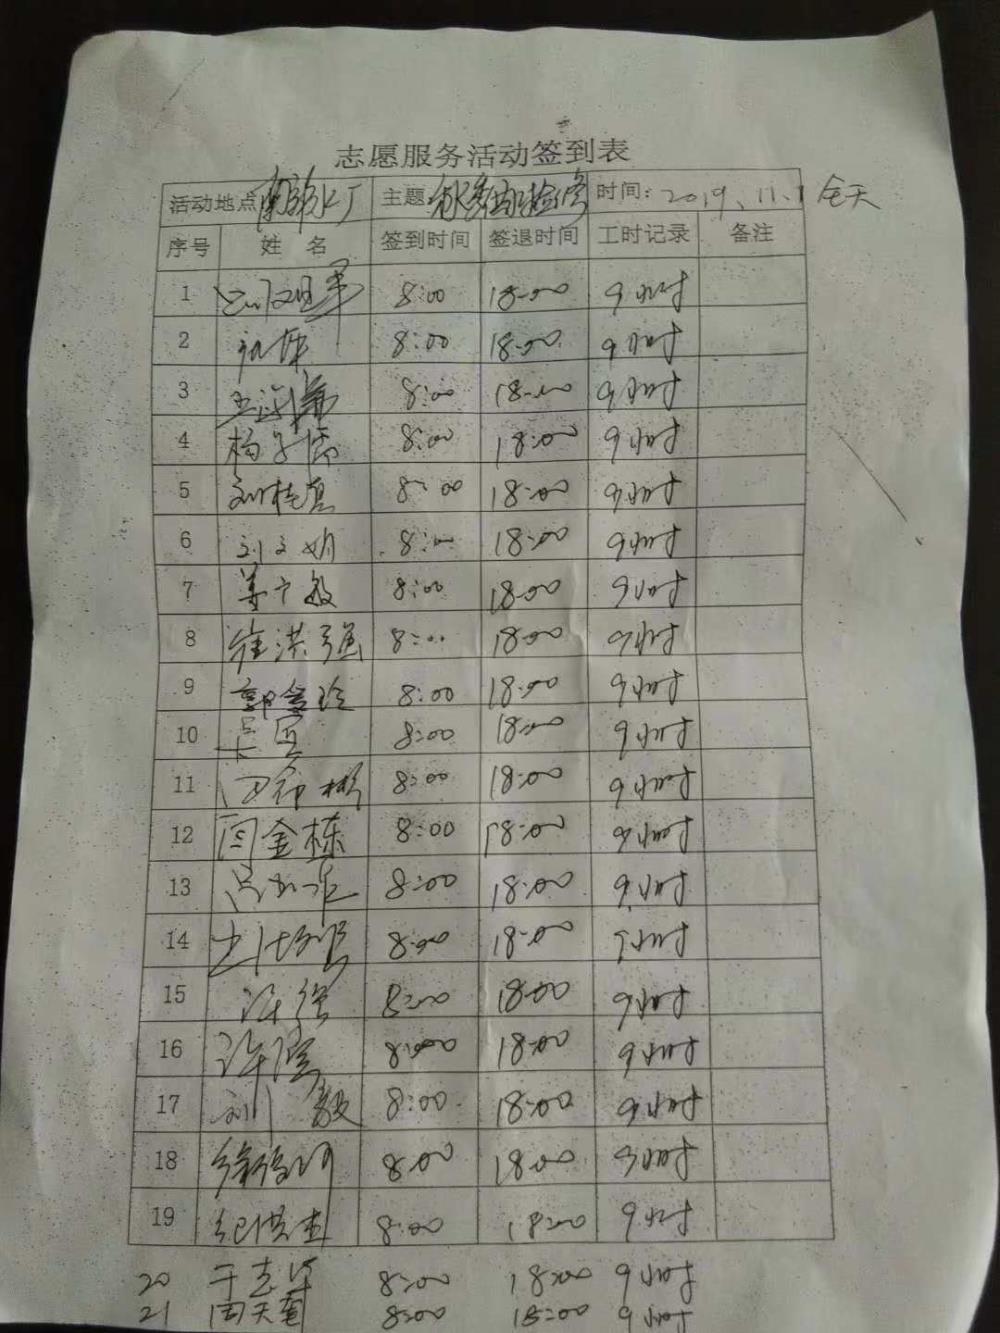 志愿服务活动签到表
活动地点 主题 时间: 2019.11.1 全天
序号 姓 名 签到时间 签退时间 工时记录 备注
1 8:00 18:00 9小时
2 8:00 18:00 9小时
3 8:00 18:00 9小时
4 杨子儒 8:00 18:00 9小时
5 刘桂真 8:00 18:00 9小时
6 刘文娟 8:00 18:00 9小时
7 姜广敏 8:00 18:00 9小时
8 崔洪强 8:00 18:00 9小时
9 郭鑫玲 8:00 18:00 9小时
10 8:00 18:00 9小时
11 8:00 18:00 9小时
12 闫金栋 8:00 18:00 9小时
13 8:00 18:00 9小时
14 8:00 18:00 9小时
15 8:00 18:00 9小时
16 8:00 18:00 9小时
17 刘 毅 8:00 18:00 9小时
18 8:00 18:00 9小时
19 纪洪杰 8:00 18:00 9小时
20 于志军 8:00 18:00 9小时
21 8:00 18:00 9小时